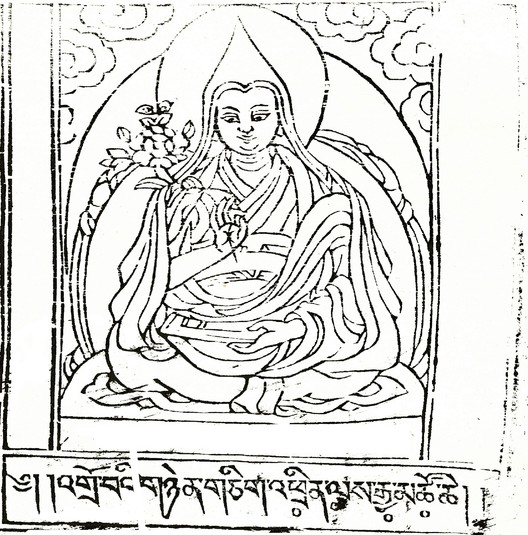 ༄། །འགྲོ་བའི་གཉེན་གཅིག་འཕྲིན་ལས་རྒྱ་མཚོ